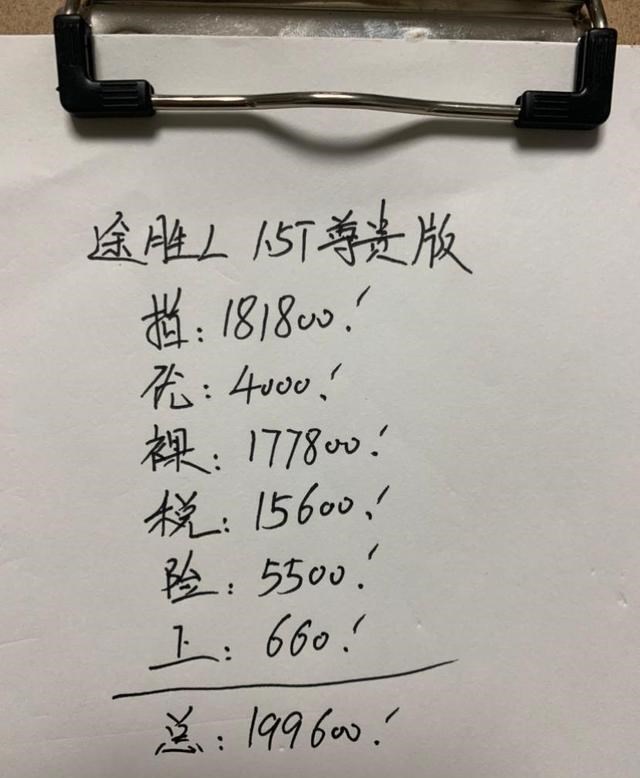 途胜L 1.5T尊贵版
指:181800.!
优:4000.!
裸:177800.!
税:15600.!
险:5500.!
上:660.!
总:199600.!